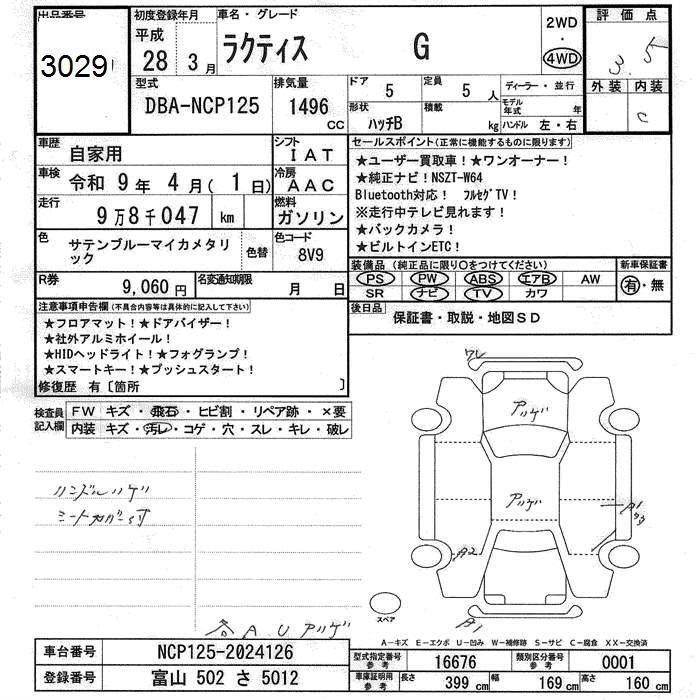 出品番号
3029
初度登録年月
平成
28 3月
車名・グレード
ラクティス G
2WD
・
4WD
評価点
3.5
外装 内装
C
型式
DBA-NCP125
排気量
1496
CC
ドア 5
定員 5 人
形状 ハッチB
積載 kg
ディーラー・並行
モデル年式 年
ハンドル 左・右
車歴 自家用
車検 令和 9年 4月( 1日)
走行 9万8千047 km
シフト IAT
冷房 AAC
燃料 ガソリン
色 サテンブルーマイカメタリック
色替
色コード 8V9
R券 9,060円
名変通知期限 月 日
セールスポイント(正常に機能するものに限ります)
★ユーザー買取車!★ワンオーナー!
★純正ナビ!NSZT-W64
Bluetooth対応! フルセグTV!
※走行中テレビ見れます!
★バックカメラ!
★ビルトインETC!
装備品 (純正品に限り○をつけてください)
PS PW ABS エアB AW
SR ナビ TV カワ
新車保証書
有・無
後日品
保証書・取説・地図SD
注意事項申告欄(不具合内容等は具体的に記入して下さい)
★フロアマット!★ドアバイザー!
★社外アルミホイール!
★HIDヘッドライト!★フォグランプ!
★スマートキー!★プッシュスタート!
修復歴 有〔箇所 〕
検査員記入欄
FW キズ・飛石・ヒビ割・リペア跡・×要
内装 キズ・汚レ・コゲ・穴・スレ・キレ・破レ
ハンドルハゲ
シートカバー
ワレ
アッゲ
アッゲ
A1
A2
A1
各 A.U アッゲ
スペア
A-キズ E-エクボ U-凹み W-補修跡 S-サビ C-腐食 XX-交換済
車台番号 NCP125-2024126
登録番号 富山 502 さ 5012
型式指定番号 参考 16676
類別区分番号 参考 0001
車庫証明用 参考 長さ 399 cm 幅 169 cm 高さ 160 cm